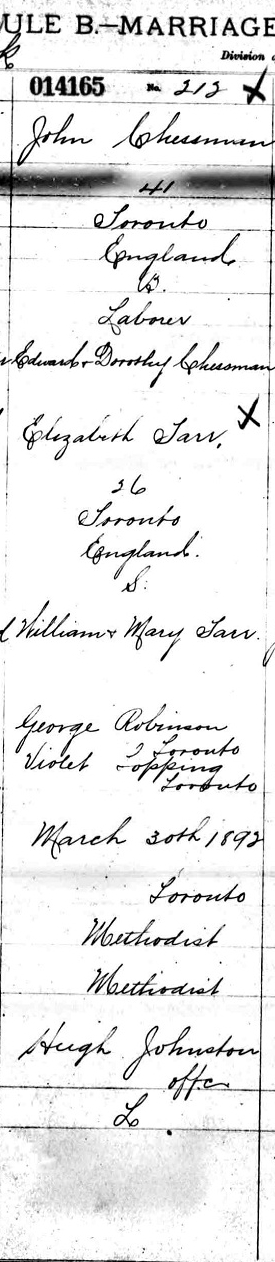 ULE B.—MARRIAGE
Division
014165 No. 212 X
John Chessman
41
Toronto
England
B.
Laborer
Edward + Dorothy Chessman
X
Elizabeth Tarr.
26
Toronto
England.
S.
William + Mary Tarr.
George Robinson
Toronto
Violet Topping
Toronto
March 30th 1892
Toronto
Methodist
Methodist
Hugh Johnston
offc
L